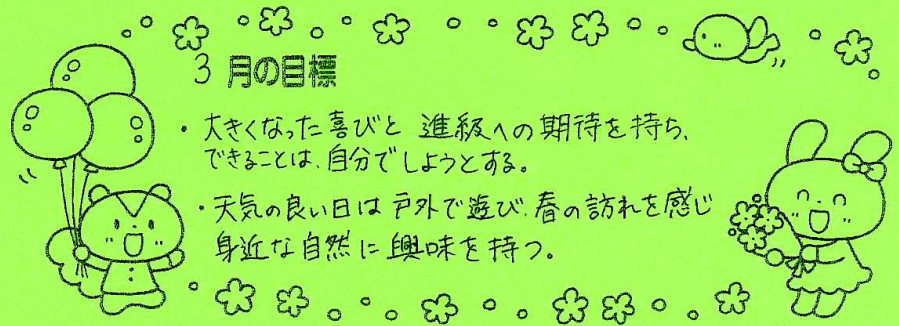 3月の目標
・大きくなった喜びと 進級への期待を持ち、
できることは、自分でしようとする。
・天気の良い日は戸外で遊び、春の訪れを感じ
身近な自然に興味を持つ。